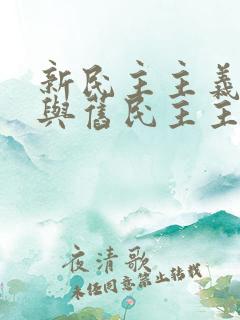 新民主主義
與舊民主主
夜清歌
未经同意禁止转载